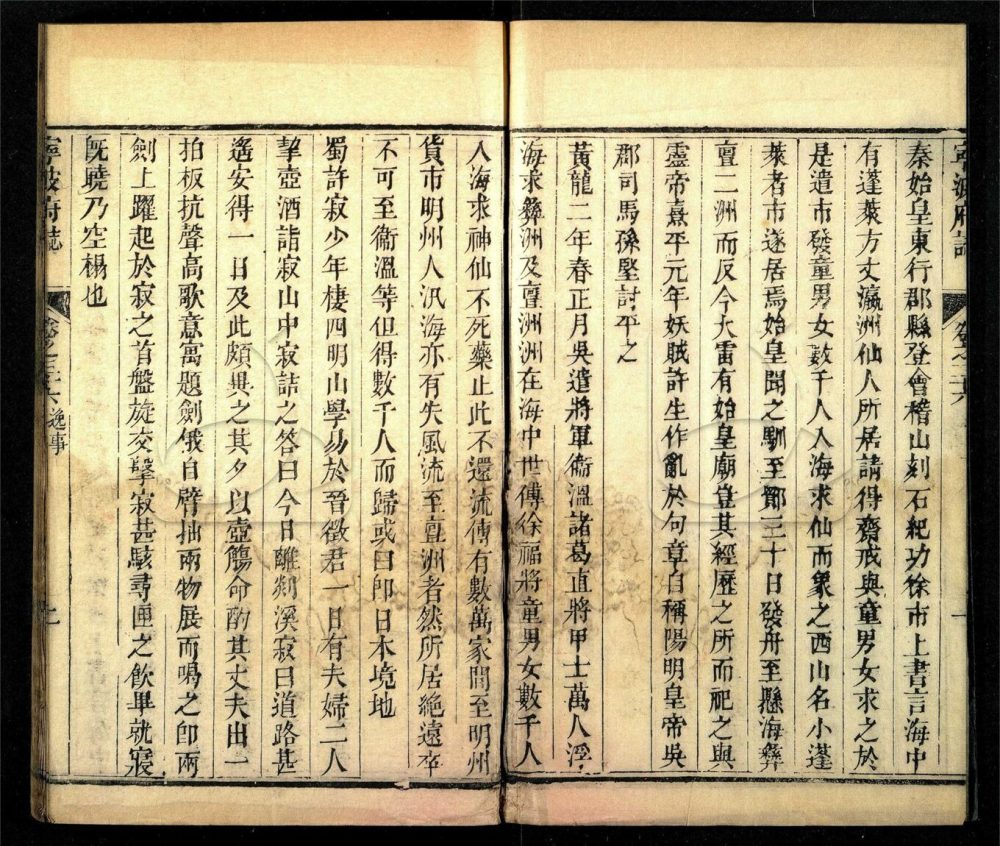 寧波府誌
卷之三十六
秦始皇東行郡縣登會稽山刻石紀功徐市上書言海中
有蓬萊方丈瀛洲仙人所居請得齋戒與童男女求之於
是遣市發童男女數千人入海求仙而象之西山名小蓬
萊者市遂居焉始皇聞之馴至鄮三十日發舟至懸海彝
亶二洲而反今大雷有始皇廟豈其經歷之所而祀之與
靈帝熹平元年妖賊許生作亂於句章自稱陽明皇帝吳
郡司馬孫堅討平之
黃龍二年春正月吳遣將軍衞溫諸葛直將甲士萬人浮
海求彝洲及亶洲洲在海中世傳徐福將童男女數千人
入海求神仙不死藥止此不還流傳有數萬家間至明州
貨市明州人汎海亦有失風流至亶洲者然所居絕遠卒
不可至衞溫等但得數千人而歸或曰卽日本境地
蜀許寂少年棲四明山學易於晉徵君一日有夫婦二人
挈壺酒詣寂山中寂詰之答曰今日離剡溪寂曰道路甚
遙安得一日及此頗異之其夕以壺觴命酌其丈夫出一
拍板抗聲高歌意寓題劍俄自臂抽兩物展而鳴之卽兩
劍上躍起於寂之首盤旋交擊寂甚駭尋匣之飲畢就寢
旣曉乃空榻也
寧波府誌
卷之三十六 逸事